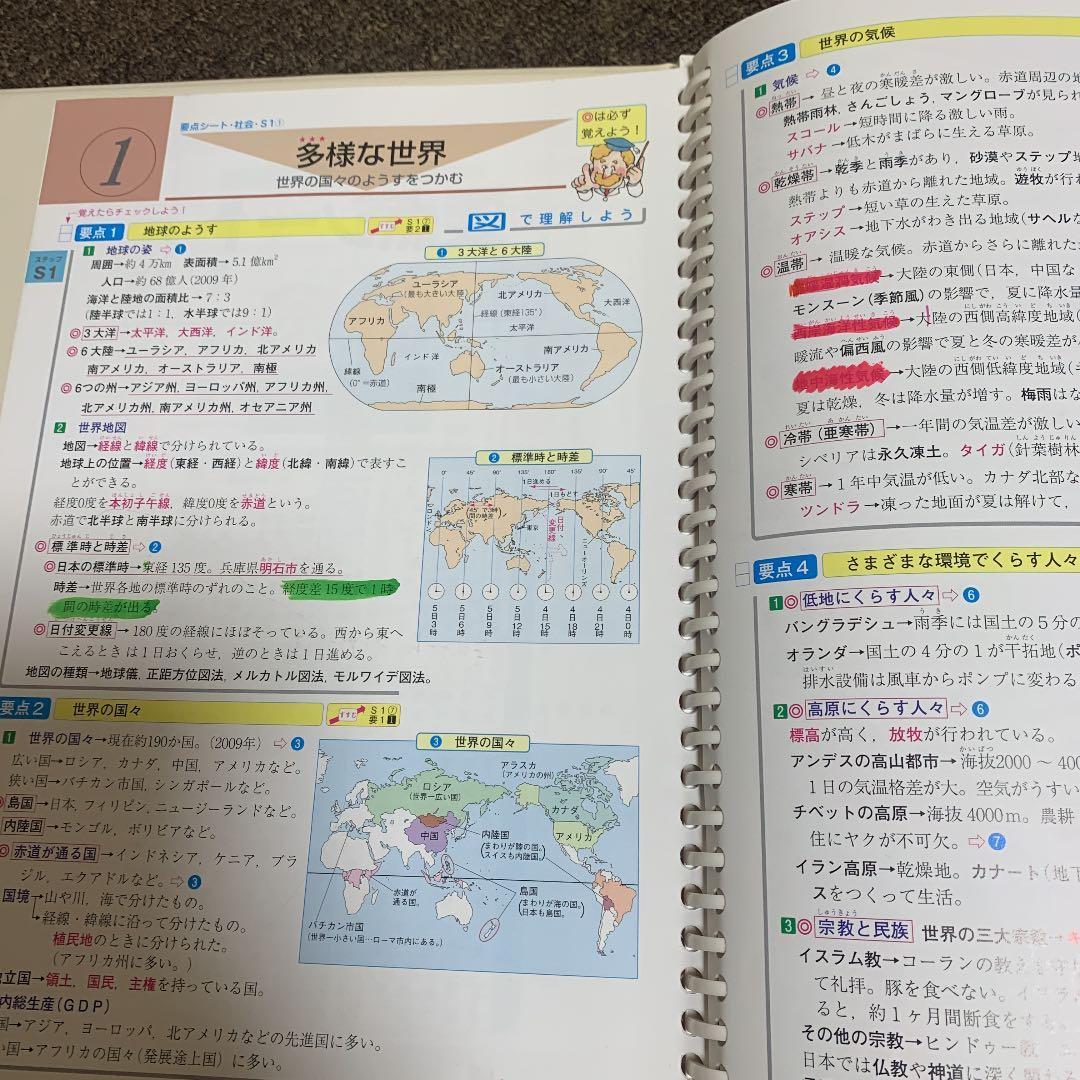 要点シート・社会・S1①
1
多様な世界
世界の国々のようすをつかむ
◎は必ず
覚えよう!
覚えたらチェックしよう!
ステップ
S1
要点1 地球のようす
すすむ S1⑦
要2 1
図で理解しよう
1 地球の姿 ⇨ 1
周囲→約4万km 表面積→5.1億km²
人口→約68億人(2009年)
海洋と陸地の面積比→7:3
(陸半球では1:1, 水半球では9:1)
◎3大洋→太平洋, 大西洋, インド洋。
◎6大陸→ユーラシア, アフリカ, 北アメリカ
南アメリカ, オーストラリア, 南極
◎6つの州→アジア州, ヨーロッパ州, アフリカ州,
北アメリカ州, 南アメリカ州, オセアニア州
2 世界地図
地図→経線と緯線で分けられている。
地球上の位置→経度(東経・西経)と緯度(北緯・南緯)で表すこ
とができる。
経度0度を本初子午線, 緯度0度を赤道という。
赤道で北半球と南半球に分けられる。
◎標準時と時差⇨2
◎日本の標準時→東経135度。兵庫県明石市を通る。
時差→世界各地の標準時のずれのこと。経度差15度で1時
間の時差が出る。
◎日付変更線→180度の経線にほぼそっている。西から東へ
こえるときは1日おくらせ, 逆のときは1日進める。
地図の種類→地球儀, 正距方位図法, メルカトル図法, モルワイデ図法。
1 3大洋と6大陸
ユーラシア
(最も大きい大陸)
北アメリカ
大西洋
経線(東経135°)
アフリカ
太平洋
インド洋
南アメリカ
緯線
(0°=赤道)
オーストラリア
(最も小さい大陸)
南極
2 標準時と時差
0° 45° 90° 135° 180° 135° 90° 45° 0°
1日進める
1日もどす
ロンドン
45°で3時
間の時差
東京
日付変更線
ニューオーリンズ
5日3時
5日6時
5日9時
5日12時
4日15時
4日18時
4日21時
4日0時
要点2 世界の国々
すすむ S1⑦
要1 1
1 世界の国々→現在約190か国。(2009年)⇨3
広い国→ロシア, カナダ, 中国, アメリカなど。
狭い国→バチカン市国, シンガポールなど。
◎島国→日本, フィリピン, ニュージーランドなど。
内陸国→モンゴル, ボリビアなど。
◎赤道が通る国→インドネシア, ケニア, ブラ
ジル, エクアドルなど。⇨3
国境→山や川, 海で分けたもの。
経線・緯線に沿って分けたもの。
植民地のときに分けられた。
(アフリカ州に多い。)
立国→領土, 国民, 主権を持っている国。
内総生産(GDP)
国→アジア, ヨーロッパ, 北アメリカなどの先進国に多い。
い国→アフリカの国々(発展途上国)に多い。
3 世界の国々
アラスカ
(アメリカの州)
ロシア
(世界一広い国)
カナダ
中国
アメリカ
内陸国
(まわりが陸の国。
スイスも内陸国。)
赤道が
通る国。
島国
(まわりが海の国。
日本も島国。)
バチカン市国
(世界一小さい国…ローマ市内にある。)
要点3 世界の気候
1 気候 ⇨ 4
◎熱帯→ 昼と夜の寒暖差が激しい。赤道周辺の地
熱帯雨林, さんごしょう, マングローブが見られ
スコール→短時間に降る激しい雨。
サバナ→低木がまばらに生える草原。
◎乾燥帯→乾季と雨季があり, 砂漠やステップ地
熱帯よりも赤道から離れた地域。遊牧が行わ
ステップ→短い草の生えた草原。
オアシス→地下水がわき出る地域(サヘルな
◎温帯→ 温暖な気候。赤道からさらに離れた
→大陸の東側(日本, 中国な
モンスーン(季節風)の影響で, 夏に降水量
西岸海洋性気候→大陸の西側高緯度地域(
暖流や偏西風の影響で夏と冬の寒暖差が
地中海性気候→大陸の西側低緯度地域(
夏は乾燥, 冬は降水量が増す。梅雨はな
◎冷帯(亜寒帯)→一年間の気温差が激しい
シベリアは永久凍土。タイガ(針葉樹林
◎寒帯→1年中気温が低い。カナダ北部な
ツンドラ→凍った地面が夏は解けて,
要点4 さまざまな環境でくらす人々
1◎低地にくらす人々⇨6
バングラデシュ→雨季には国土の5分の
オランダ→国土の4分の1が干拓地(ポ
排水設備は風車からポンプに変わる
2◎高原にくらす人々⇨6
標高が高く, 放牧が行われている。
アンデスの高山都市→海抜2000〜400
1日の気温格差が大。空気がうすい
チベットの高原→海抜4000m。農耕
住にヤクが不可欠。⇨7
イラン高原→乾燥地。カナート(地下
スをつくって生活。
3◎宗教と民族 世界の三大宗教→キ
イスラム教→コーランの教えを守り
て礼拝。豚を食べない。イスラ
ると, 約1ヶ月間断食をする。
その他の宗教→ヒンドゥー教
日本では仏教や神道に深く関わ